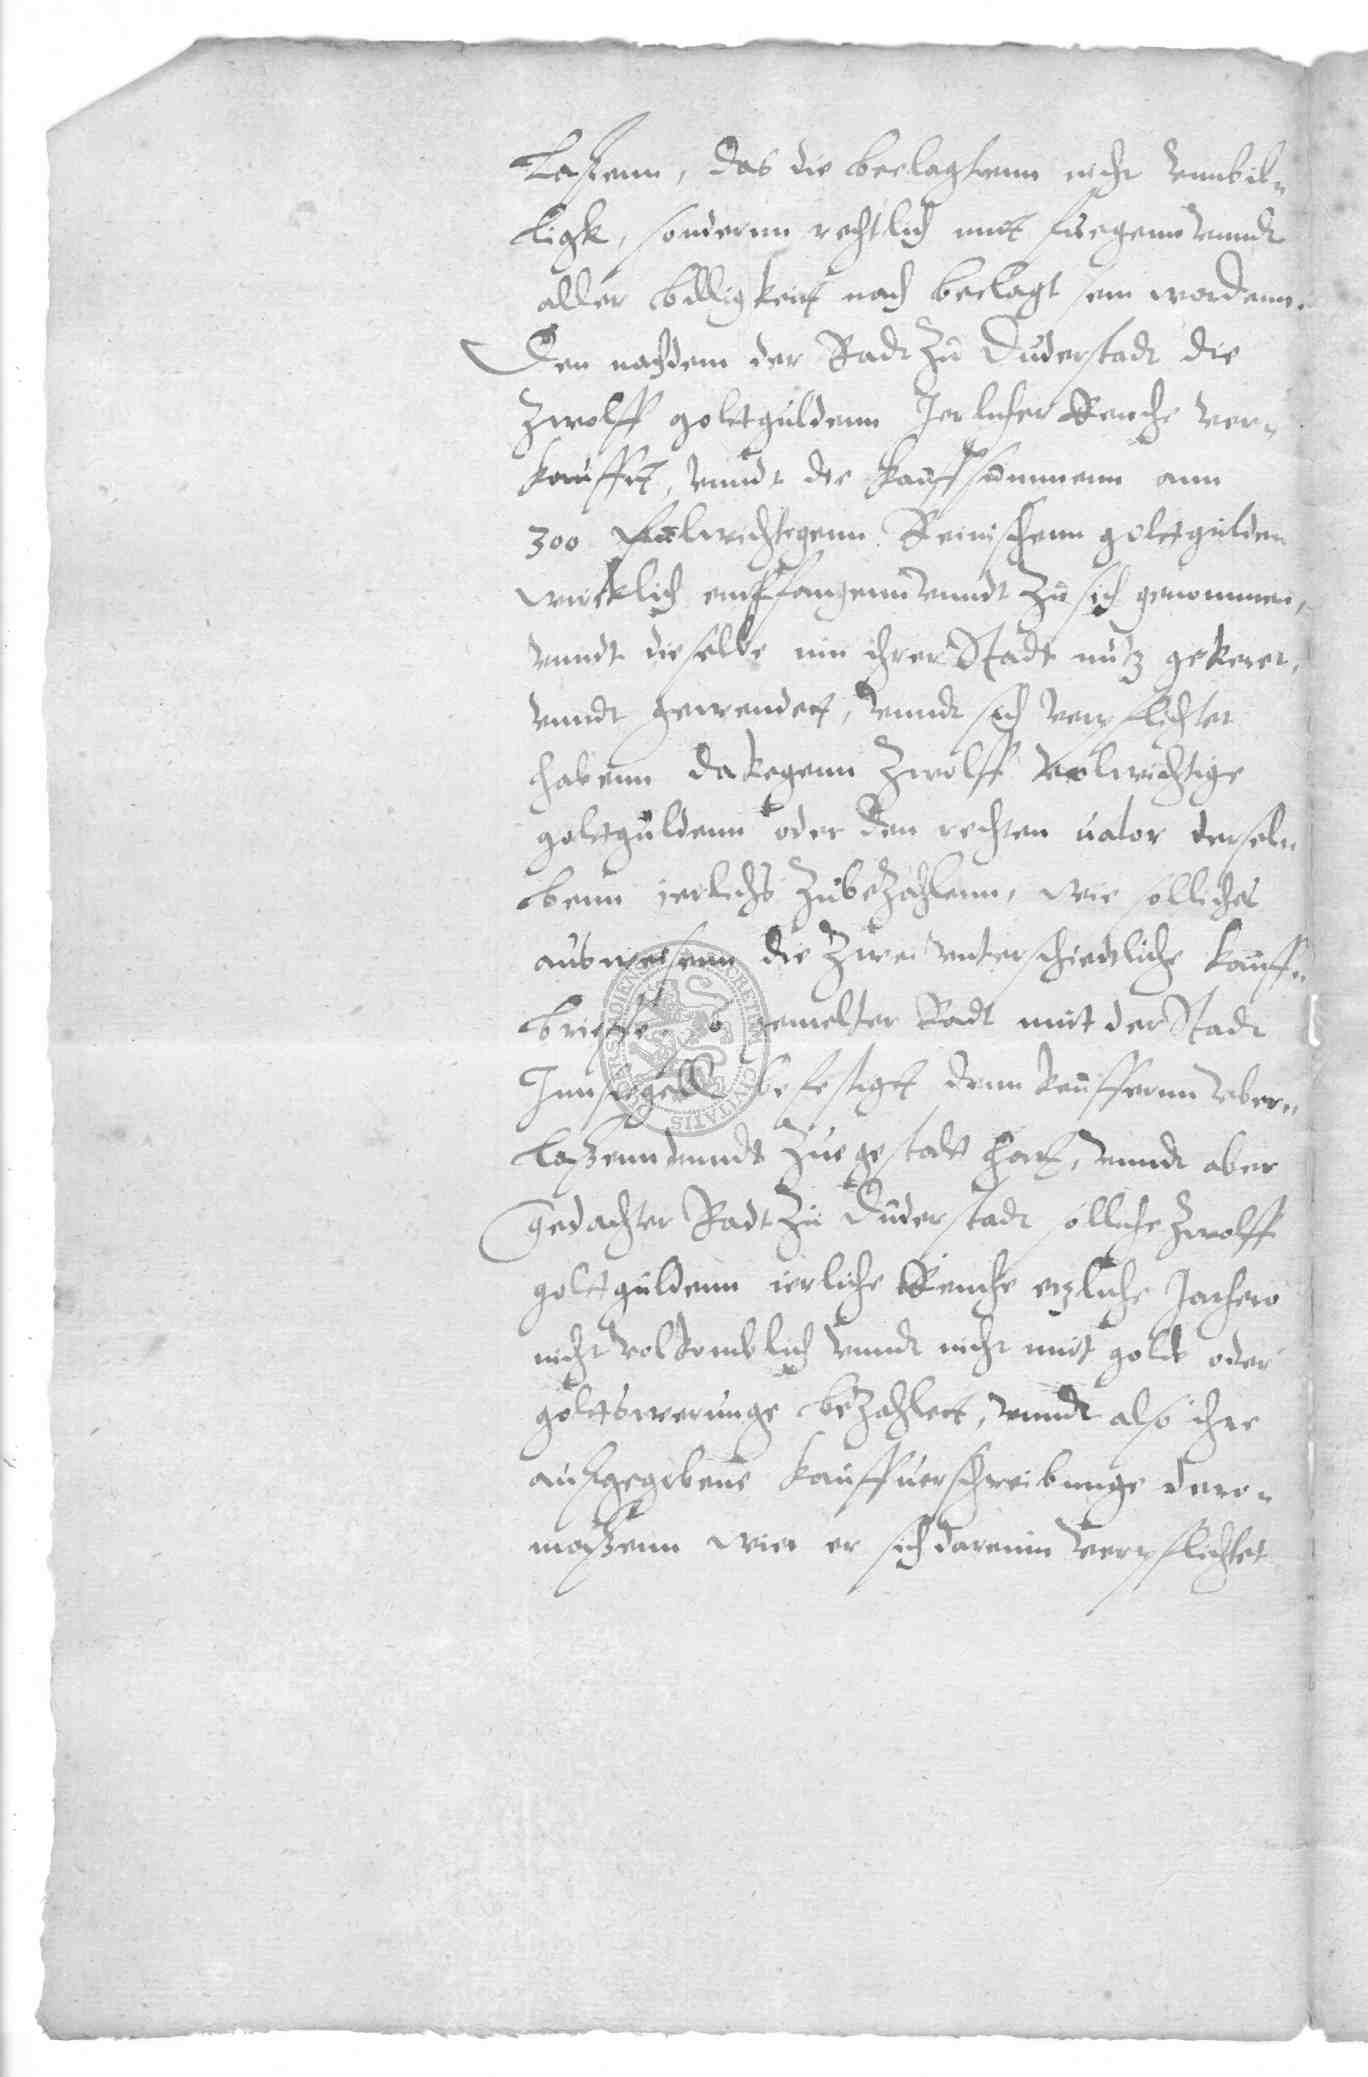 laßenn, das die beclagtenn nicht vnnbil„
ligk, sonderun rechtlich mit fuegenn vnndt
aller billigkeitt nach beclagt sein wordenn.
Den nachdem der Radt zu Duderstadt die
zwolff goltguldenn Jerlicher Renthe ver„
kaufft, vnndt die kauffsummenn ann
300 fulwichtegenn Reinischenn goltgulden
wircklich emffangenn vnndt zu sich genommen,
vnndt dieselbe inn ihrer Stadt nutz gekeret,
vnndt gewendett, vnndt sich verpflichtet
habenn dakegenn zwolff volwichtige
goltguldenn oder den rechten ualor dersel„
benn ierlichs zubezahlenn, wie solliches
ausweisenn die zwei vnterschiedtliche kauff„
brieffe so gemelter Radt mit der Stadt
Innsiegell befestigtt denn keuffernn vber„
laßenn vnndt zuegestalt hatt, vnndt aber
gedachter Radt zu Duderstadt solliche zwolff
goltguldenn ierliche Renthe etzliche Jarhero
nicht volkomblich vnndt nicht mit golde oder
goltswerunge bezahlett, vnndt also ihre
außgegebene kauffuerschreibunge dero„
maßenn wie er sich darinn verpflichtet